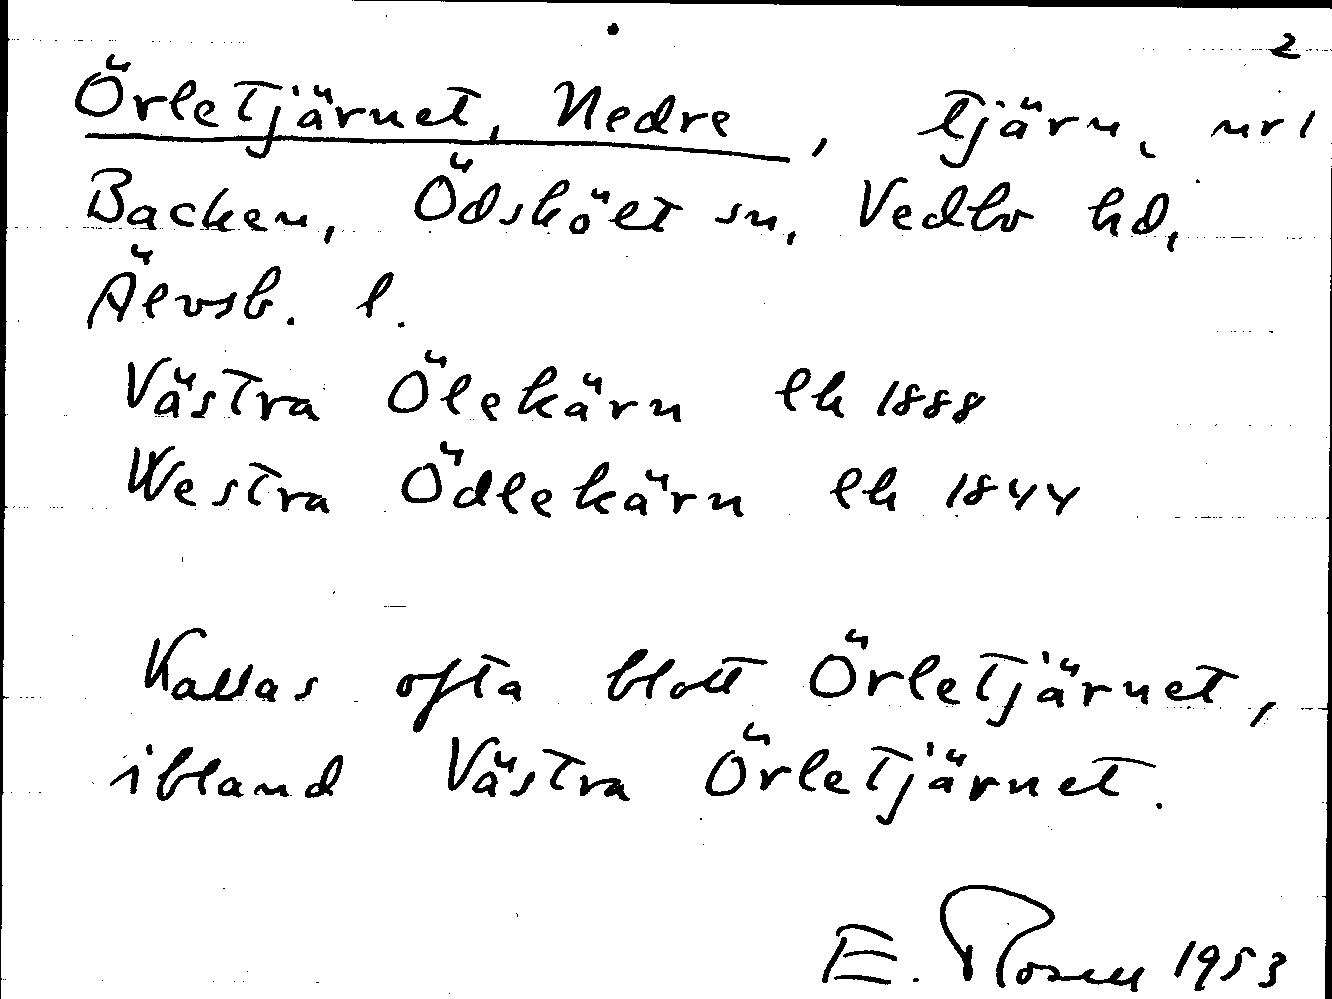 2
Örletjärnet, Nedre, tjärn, nr 1
Backen, Ödskölt sn, Vedbo hd,
Älvsb. l.
Västra Ölekärn lk 1888
Westra Ödlekärn lk 1844
Kallas ofta blott Örletjärnet,
ibland Västra Örletjärnet.
E. Rosell 1953